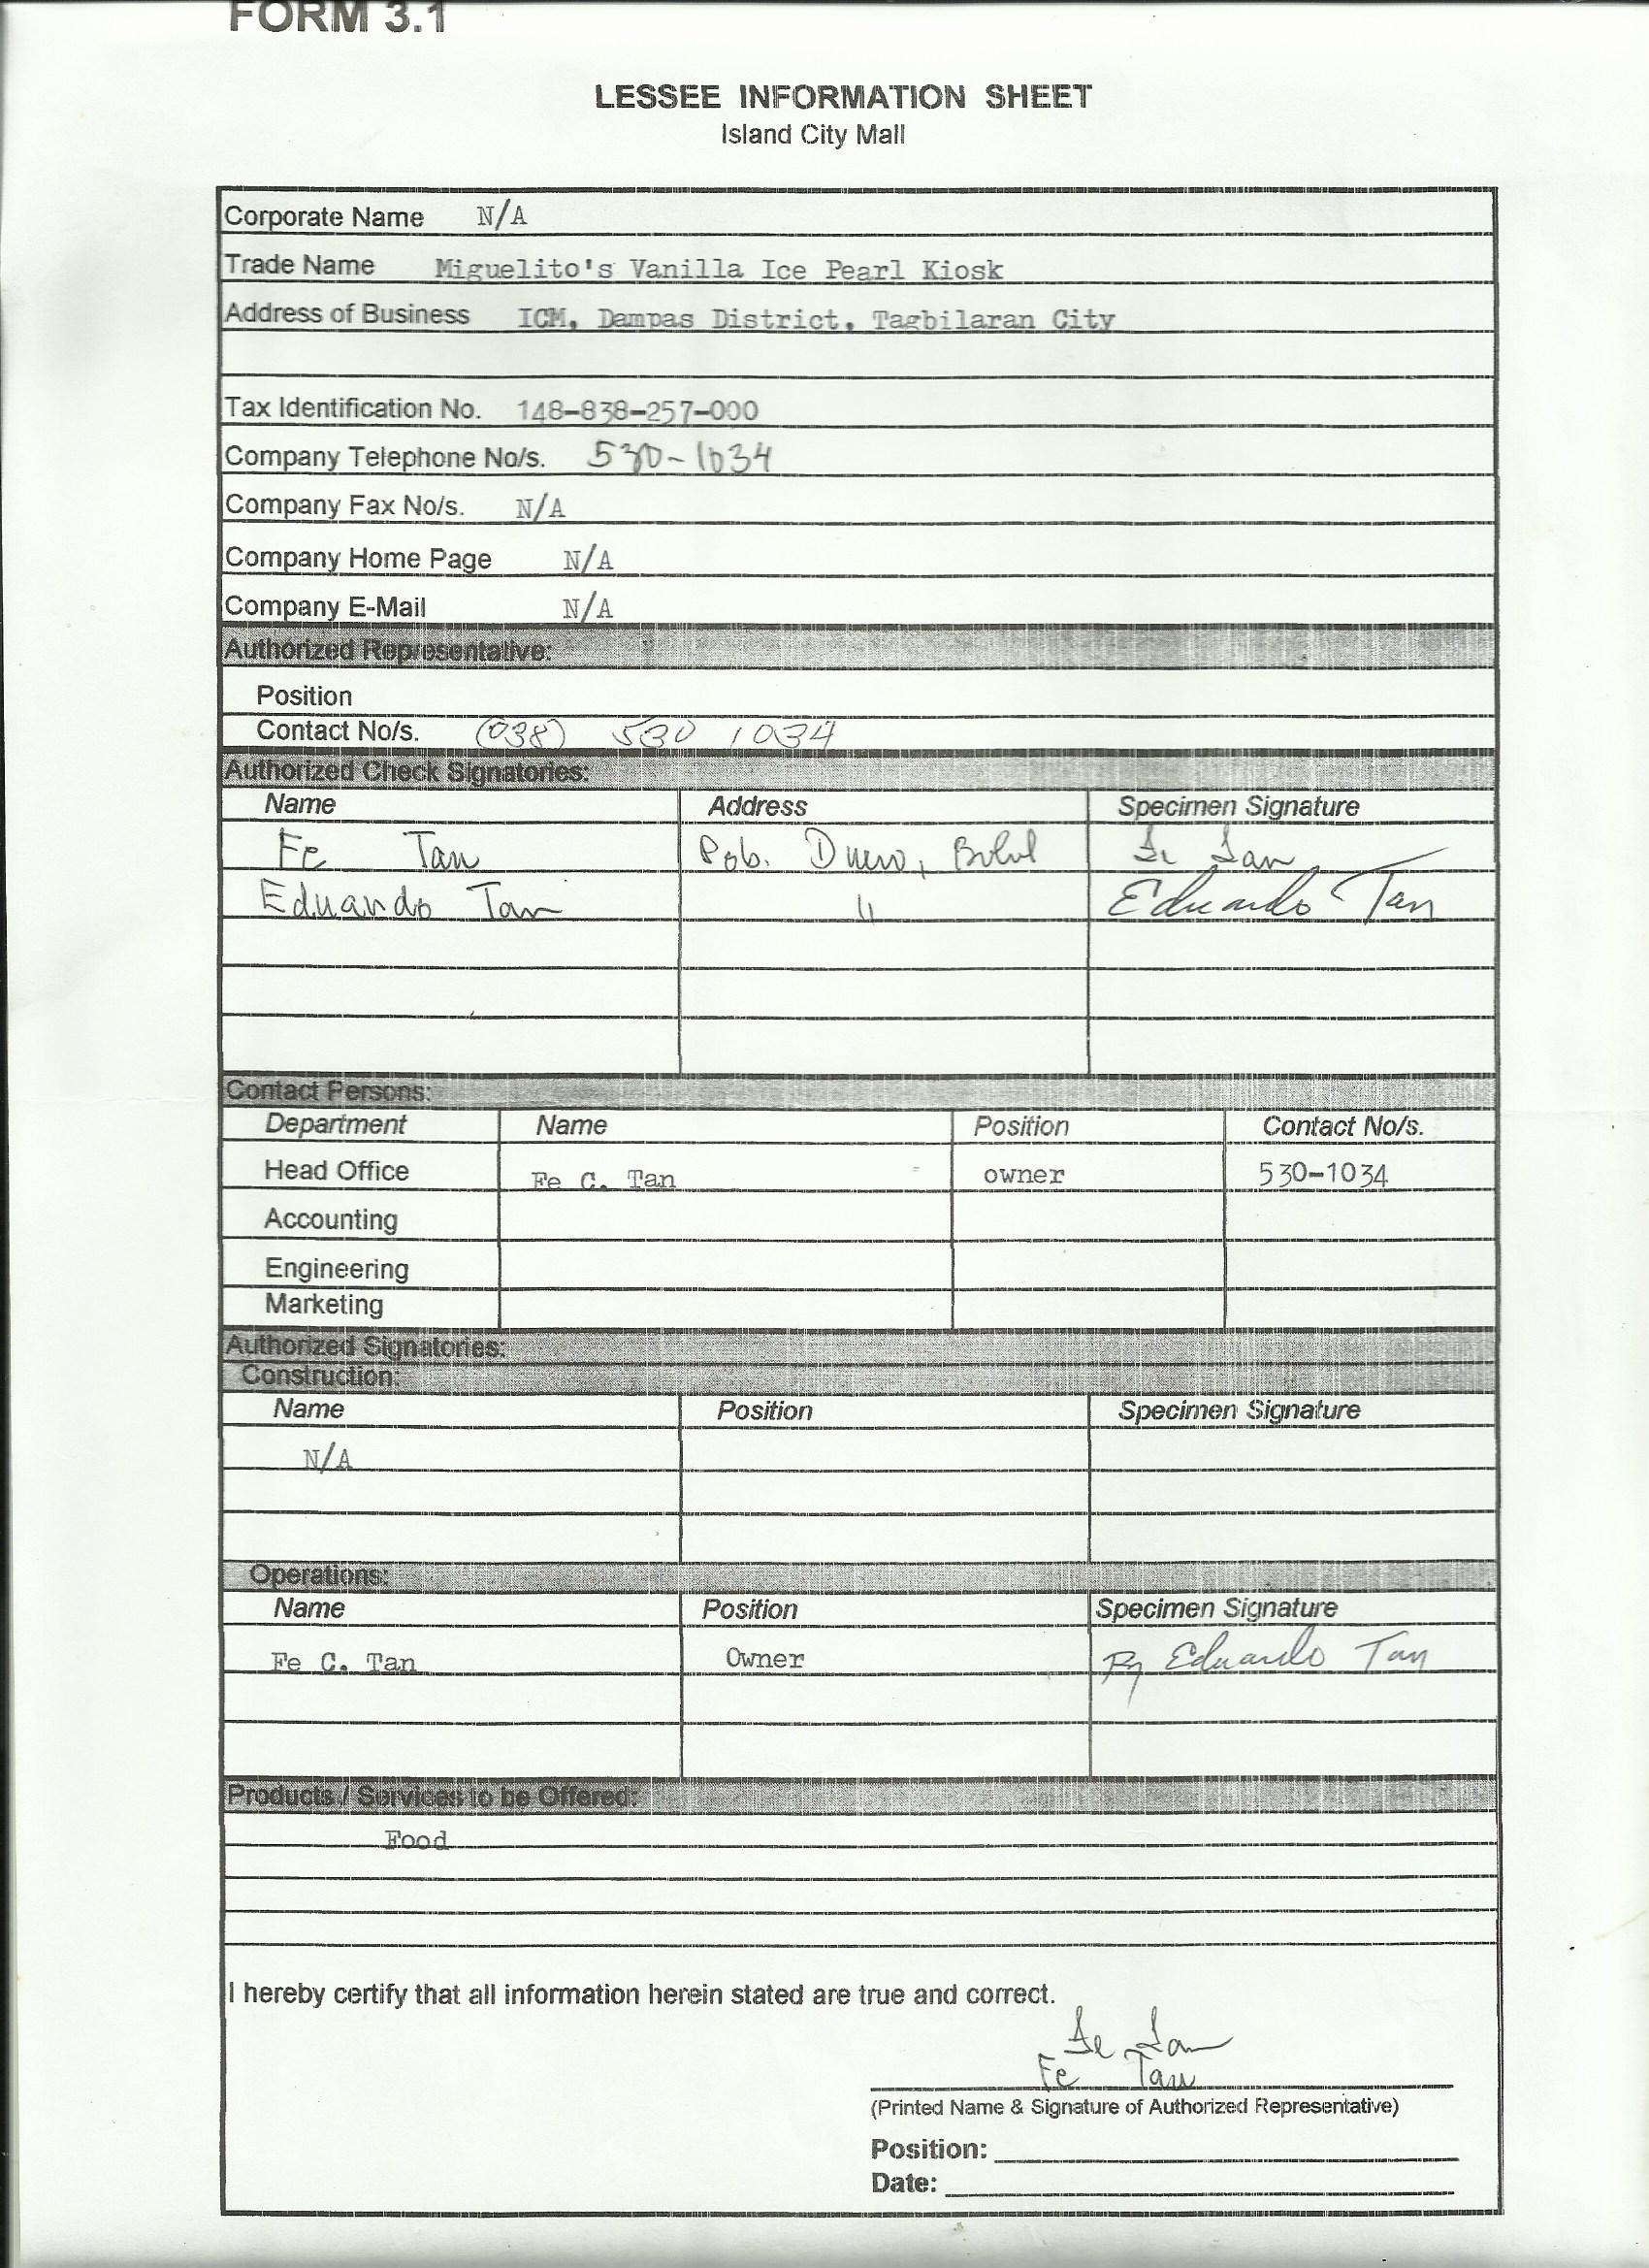 FORM 3.1
LESSEE INFORMATION SHEET
Island City Mall
Corporate Name N/A
Trade Name Miguelito's Vanilla Ice Pearl Kiosk
Address of Business ICM, Dampas District, Tagbilaran City
Tax Identification No. 148-838-257-000
Company Telephone No/s. 530-1034
Company Fax No/s. N/A
Company Home Page N/A
Company E-Mail N/A
Authorized Representative:
Position
Contact No/s. (038) 530 1034
Authorized Check Signatories:
Name Address Specimen Signature
Fe Tan Pob. Duero, Bohol Fe Tan
Eduardo Tan " Eduardo Tan
Contact Persons:
Department Name Position Contact No/s.
Head Office Fe C. Tan owner 530-1034
Accounting
Engineering
Marketing
Authorized Signatories:
Construction:
Name Position Specimen Signature
N/A
Operations:
Name Position Specimen Signature
Fe C. Tan Owner By Eduardo Tan
Products / Services to be Offered:
Food
I hereby certify that all information herein stated are true and correct.
Fe Tan
Fe Tan
(Printed Name & Signature of Authorized Representative)
Position:
Date: